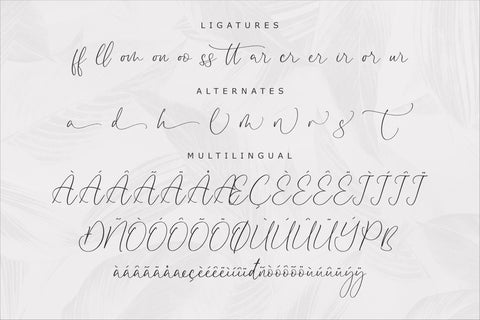 LIGATURES
ff ll om on oo ss tt ar cr er ir or ur
ALTERNATES
a d h l m n o s t
MULTILINGUAL
ÀÁÂÃÄÅÆÇÈÉÊËÌÍÎÏ
ÐÑÒÓÔÕÖØÙÚÛÜÝÞß
àáâãäåæçèéêëìíîïđñòóôõöùúûüýÿ